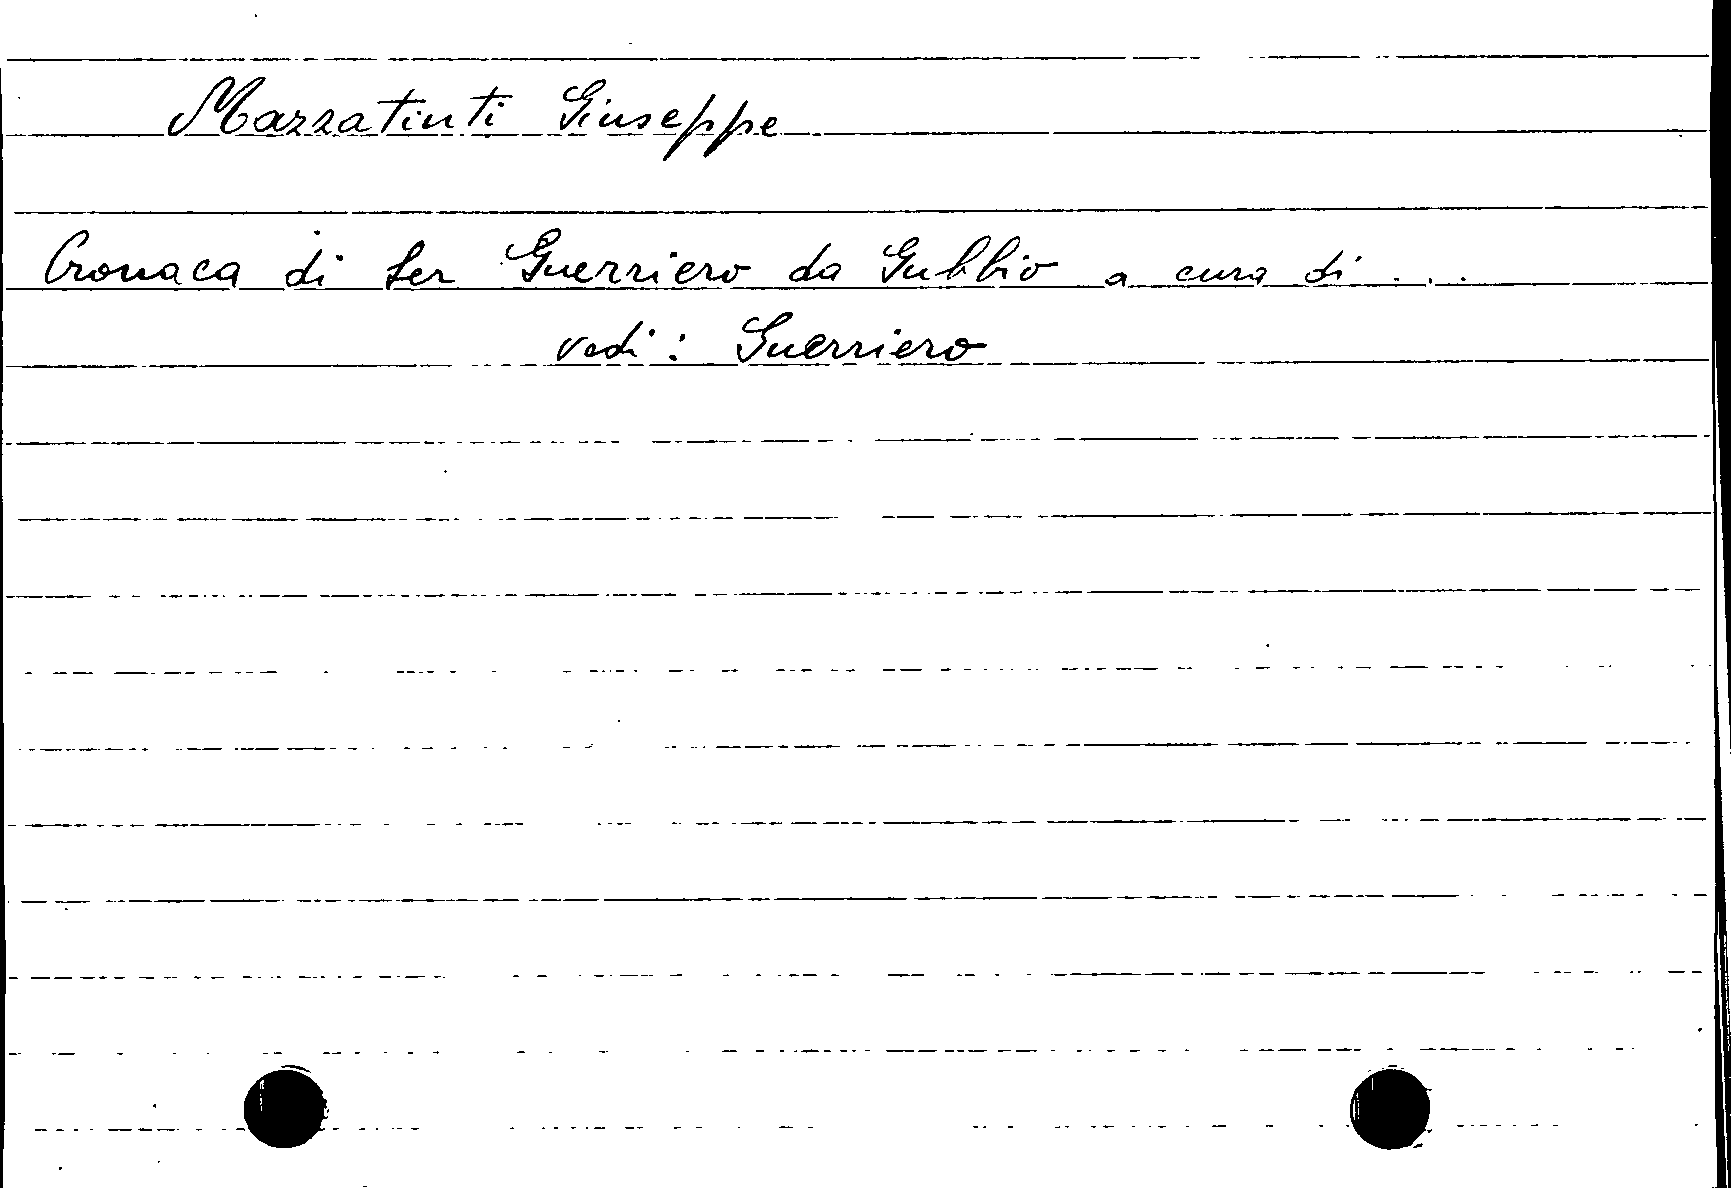 Mazzatinti Giuseppe
Cronaca di Ser Guerriero da Gubbio a cura di ...
vedi: Guerriero